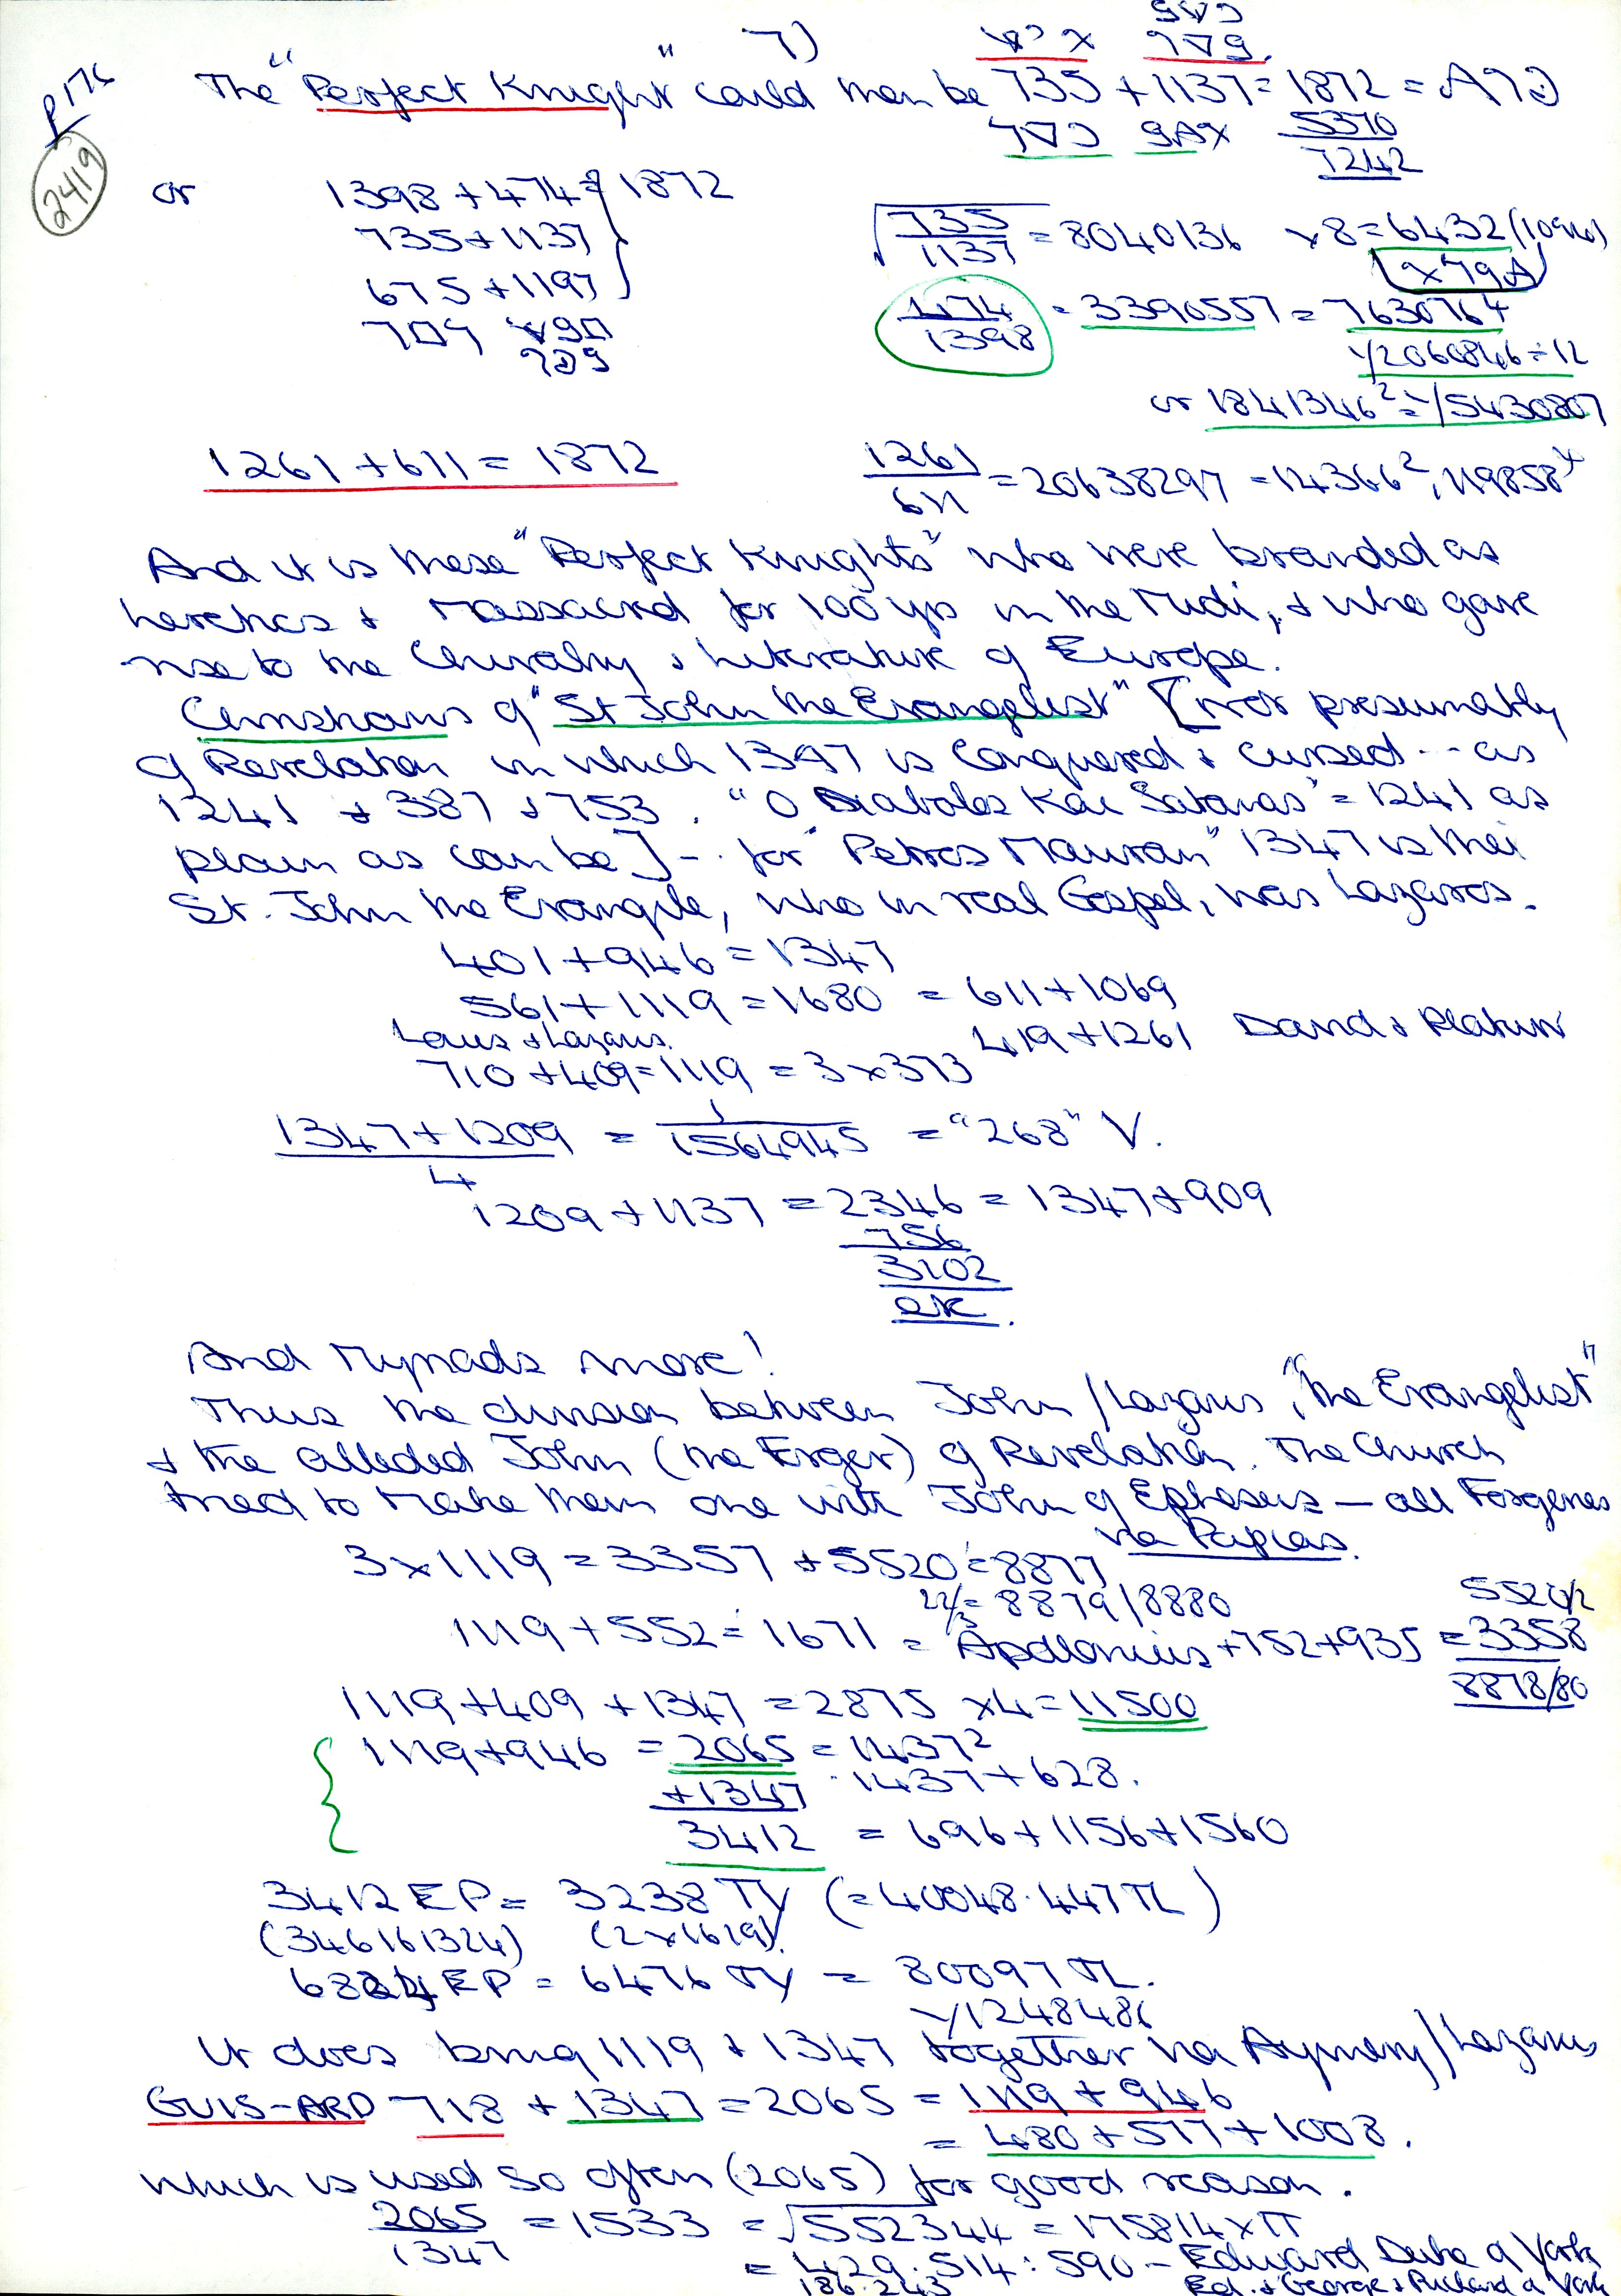 7)
P174
2419
The "Perfect Knight" could then be 735 + 1137 = 1872 =
5370
7242
or 1398 + 474 = 1872
735 + 1137
675 + 1197
√735/1137 = 8040136 x 8 = 6432 (10946)
474/1398 = 3390557 = 7630764
1/2060846 ÷ 12
or 1841346² = 1/5430807
1261 + 611 = 1872
1261/611 = 20638297 = 14366², 119858⁴
And it is these "Perfect Knights" who were branded as
heretics & Massacred for 100 yrs in the Midi, & who gave
rise to the Chivalry & Literature of Europe.
Christians of "St John the Evangelist" [not presumably
of Revelation in which 1347 is Conquered & cursed -- as
1241 + 387 + 753. "O Diabolos Kai Satanas" = 1241 as
plain as can be] - for "Petros Mauran" 1347 is their
St. John the Evangile, who in real Gospel, was Lazaros.
401 + 946 = 1347
561 + 1119 = 1680 = 611 + 1069
Laus & Lazarus. 419 + 1261 David & Platun
710 + 409 = 1119 = 3 x 373
1347 + 1209 / 4 = 1/1564945 = "268" V.
1209 + 1137 = 2346 = 1347 + 909
756
3102
OK.
And Myriads more!
Thus the division between John / Lazarus, "the Evangelist"
& the alleded John (the Forger) of Revelation. The Church
tried to Make them one with John of Ephesus — all Forgeries
via Papias.
3 x 1119 = 3357 + 5520 = 8877
22/3 = 8879/8880
5520/2
1119 + 552 = 1671 = Apollonius + 752 + 935 = 3358
8878/80
1119 + 409 + 1347 = 2875 x 4 = 11500
1119 + 946 = 2065 = 1437²
+ 1347 1437 + 628.
3412 = 696 + 1156 + 1560
3412 EP = 3238 TY (= 40048.447 TL)
(346161324) (2 x 1619)
6824 EP = 6476 TY = 80097 TL.
1/1248486
It does bring 1119 & 1347 together via Aymery / Lazarus
GUIS-ARD 718 + 1347 = 2065 = 1119 + 946
= 480 + 577 + 1008.
which is used so often (2065) for good reason.
2065/1347 = 1533 = √552344 = 175814 x π
= 429.514 : 590 - Edward Duke of York
186.243 Ed. & George & Richard of York